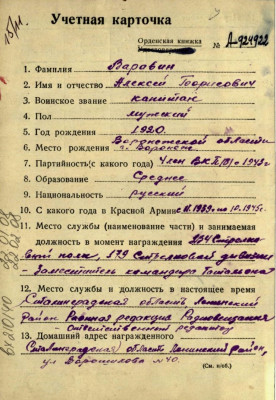 15/11
Учетная карточка
Орденская книжка
№ А-924922
1. Фамилия Варавин
2. Имя и отчество Алексей Борисович
3. Воинское звание капитан
4. Пол мужский
5. Год рождения 1920.
Воронежской области
6. Место рождения г. Воронеж
7. Партийность (с какого года) Член ВКП(б) с 1943 г
8. Образование Среднее
9. Национальность русский
10. С какого года в Красной Армии с 1939 по 10.1945 г.
11. Место службы (наименование части) и занимаемая
должность в момент награждения Стрелко-
вый полк, Стрелковой дивизии
Заместитель командира батальона
12. Место службы и должность в настоящее время
Сталинградская область Ленинский
Район Районная редакция Радиовещания
Ответственный редактор
13. Домашний адрес награжденного
Сталинградская область Ленинский район,
ул Ворошилова № 40.
(См. н/об.)